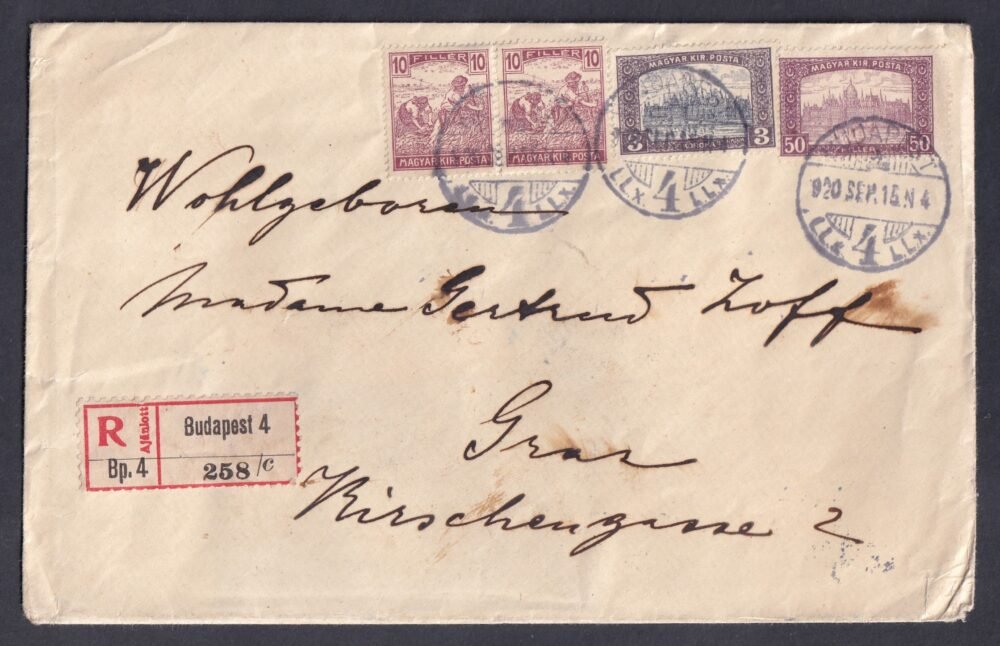 10 FILLÉR 10
MAGYAR KIR. POSTA
10 FILLÉR 10
MAGYAR KIR. POSTA
MAGYAR KIR. POSTA
3 KORONA 3
MAGYAR KIR. POSTA
50 FILLÉR 50
4 LLX.
LLX. 4 LLX.
BUDAPEST
920 SEP. 15. N 4
LLX. 4 LLX.
Wohlgeboren
Madame Gertrud Zoff
Graz
Kirschengasse 2
R Ajánlott Budapest 4
Bp. 4 258/c